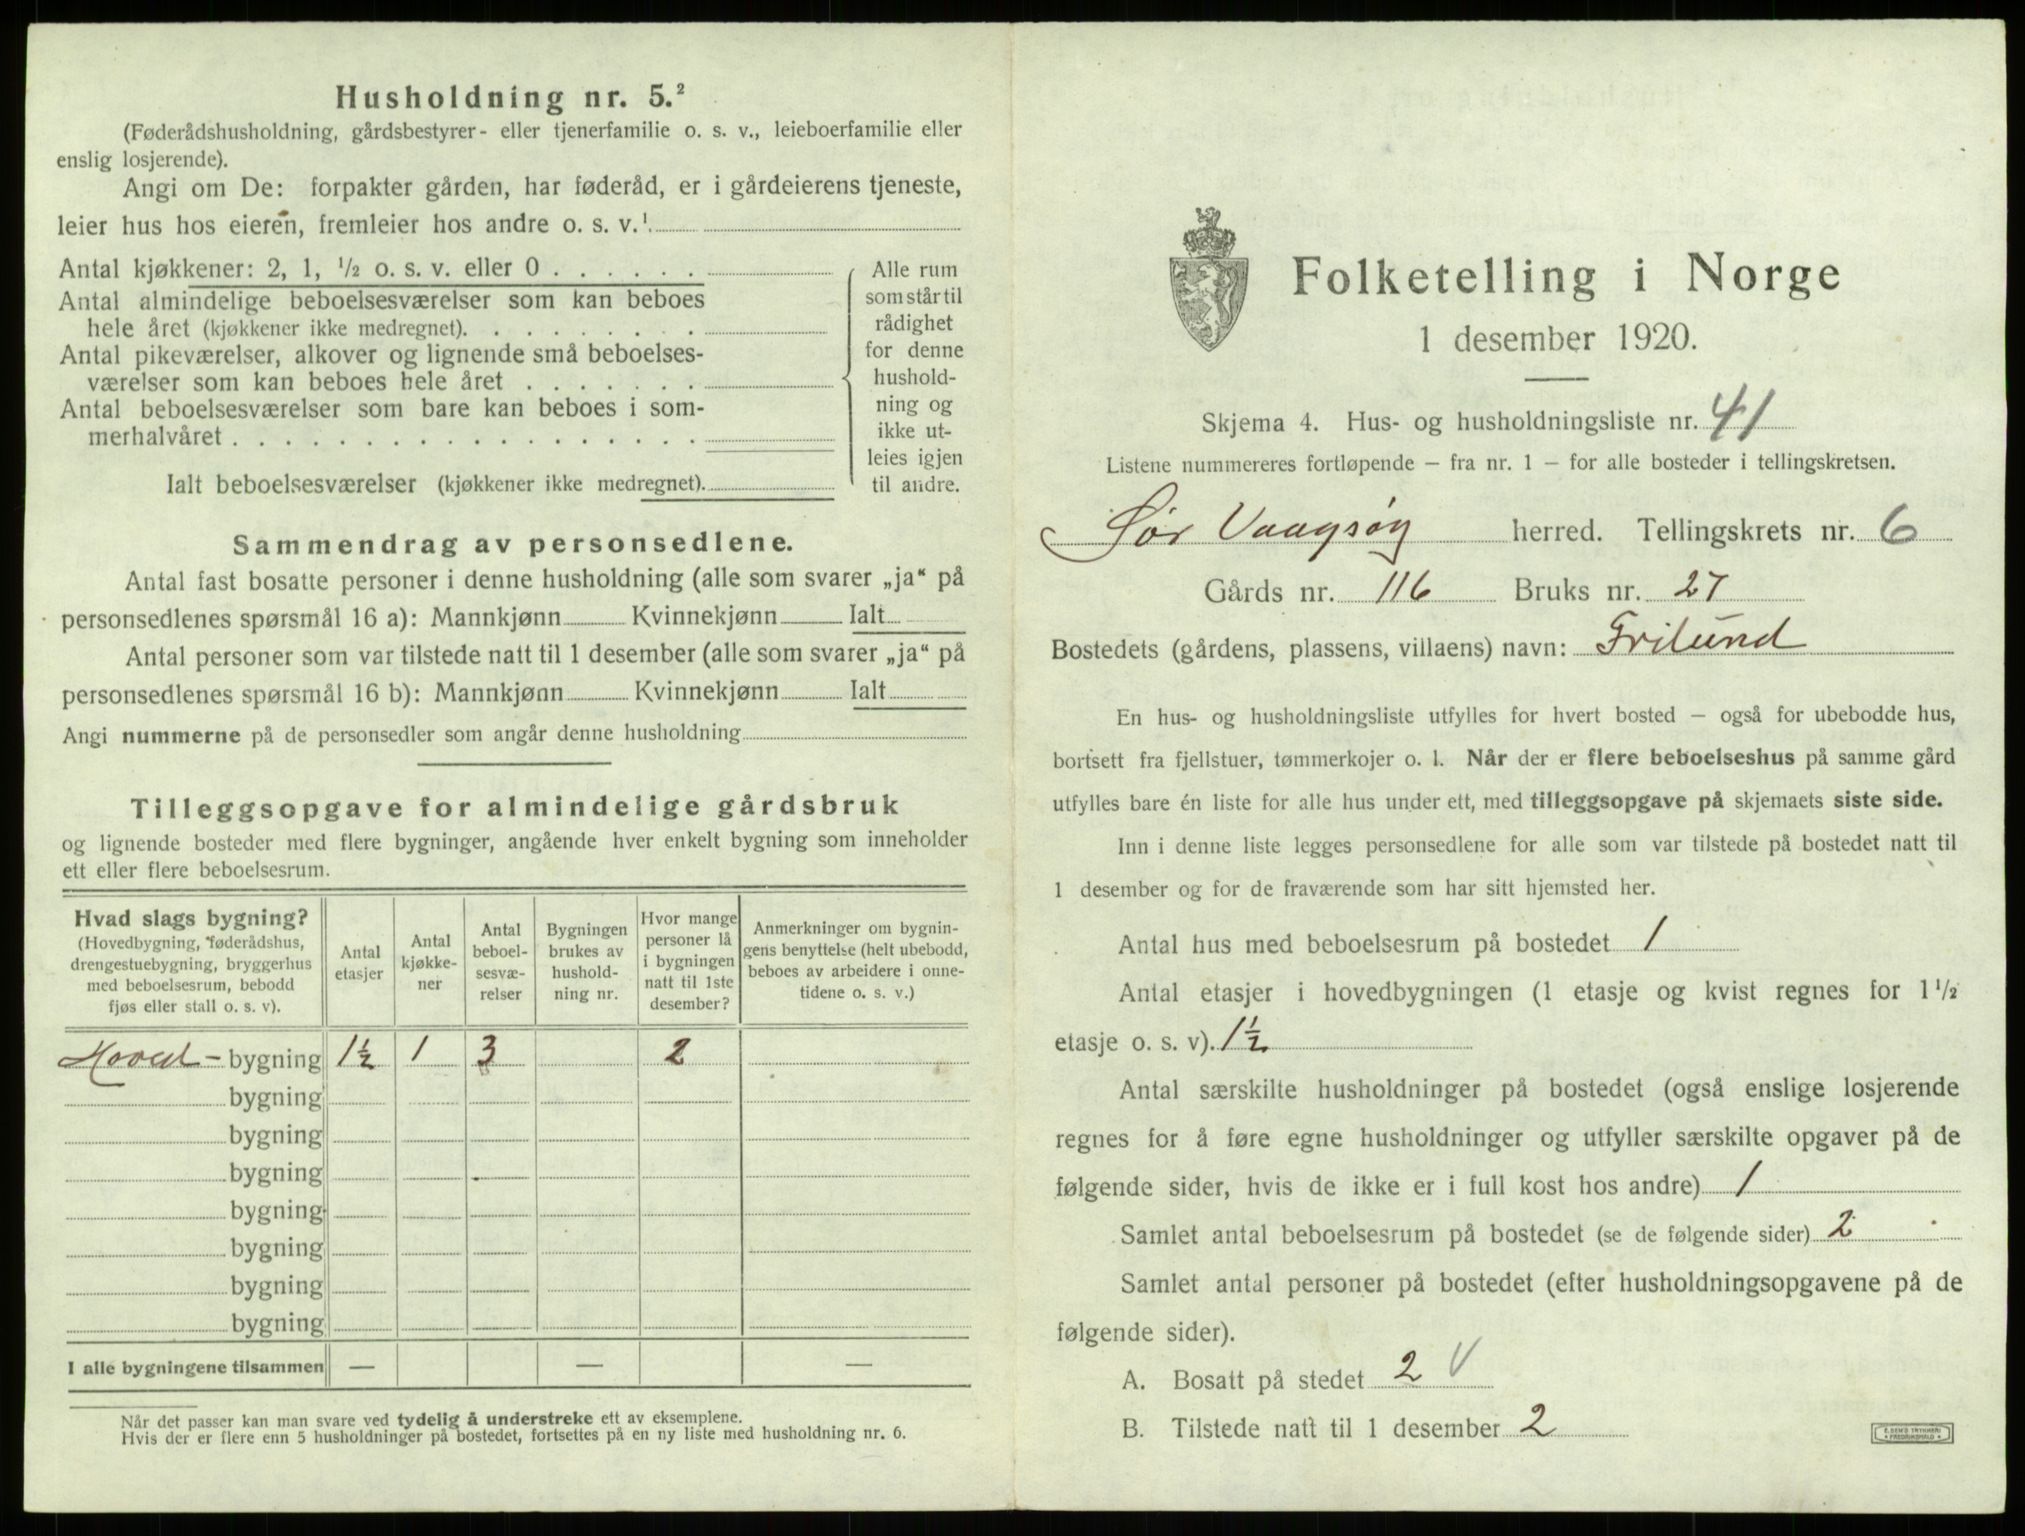 Husholdning nr. 5.²
(Føderådshusholdning, gårdsbestyrer- eller tjenerfamilie o. s. v., leieboerfamilie eller
enslig losjerende).
Angi om De: forpakter gården, har føderåd, er i gårdeierens tjeneste,
leier hus hos eieren, fremleier hos andre o. s. v.¹
Antal kjøkkener: 2, 1, ½ o. s. v. eller 0 . . . . . .
Antal almindelige beboelsesværelser som kan beboes
hele året (kjøkkener ikke medregnet). . . . . . . . .
Antal pikeværelser, alkover og lignende små beboelses-
værelser som kan beboes hele året . . . . . . .
Antal beboelsesværelser som bare kan beboes i som-
merhalvåret . . . . . . . . . . . . . . . . . .
Ialt beboelsesværelser (kjøkkener ikke medregnet).
Alle rum
som står til
rådighet
for denne
hushold-
ning og
ikke ut-
leies igjen
til andre.
Sammendrag av personsedlene.
Antal fast bosatte personer i denne husholdning (alle som svarer „ja“ på
personsedlenes spørsmål 16 a): Mannkjønn Kvinnekjønn Ialt
Antal personer som var tilstede natt til 1 desember (alle som svarer „ja“ på
personsedlenes spørsmål 16 b): Mannkjønn Kvinnekjønn Ialt
Angi nummerne på de personsedler som angår denne husholdning
Tilleggsopgave for almindelige gårdsbruk
og lignende bosteder med flere bygninger, angående hver enkelt bygning som inneholder
ett eller flere beboelsesrum.
Hvad slags bygning?
(Hovedbygning, føderådshus,
drengestuebygning, bryggerhus
med beboelsesrum, bebodd
fjøs eller stall o. s. v).
Antal
etasjer
Antal
kjøkke-
ner
Antal
beboel-
sesvæ-
relser
Bygningen
brukes av
hushold-
ning nr.
Hvor mange
personer lå
i bygningen
natt til 1ste
desember?
Anmerkninger om bygnin-
gens benyttelse (helt ubebodd,
beboes av arbeidere i onne-
tidene o. s. v.)
Hoved- bygning 1½ 1 3 2
bygning
bygning
bygning
bygning
bygning
bygning
bygning
I alle bygningene tilsammen — — —
Når det passer kan man svare ved tydelig å understreke ett av eksemplene.
Hvis der er flere enn 5 husholdninger på bostedet, fortsettes på en ny liste med husholdning nr. 6.
Folketelling i Norge
1 desember 1920.
Skjema 4. Hus- og husholdningsliste nr. 41
Listene nummereres fortløpende – fra nr. 1 – for alle bosteder i tellingskretsen.
Sør Vaagsøy herred. Tellingskrets nr. 6
Gårds nr. 116 Bruks nr. 27
Bostedets (gårdens, plassens, villaens) navn: Frilund
En hus- og husholdningsliste utfylles for hvert bosted – også for ubebodde hus,
bortsett fra fjellstuer, tømmerkojer o. l. Når der er flere beboelseshus på samme gård
utfylles bare én liste for alle hus under ett, med tilleggsopgave på skjemaets siste side.
Inn i denne liste legges personsedlene for alle som var tilstede på bostedet natt til
1 desember og for de fraværende som har sitt hjemsted her.
Antal hus med beboelsesrum på bostedet 1
Antal etasjer i hovedbygningen (1 etasje og kvist regnes for 1½
etasje o. s. v). 1½
Antal særskilte husholdninger på bostedet (også enslige losjerende
regnes for å føre egne husholdninger og utfyller særskilte opgaver på de
følgende sider, hvis de ikke er i full kost hos andre) 1
Samlet antal beboelsesrum på bostedet (se de følgende sider) 2
Samlet antal personer på bostedet (efter husholdningsopgavene på de
følgende sider).
A. Bosatt på stedet 2 V
B. Tilstede natt til 1 desember 2